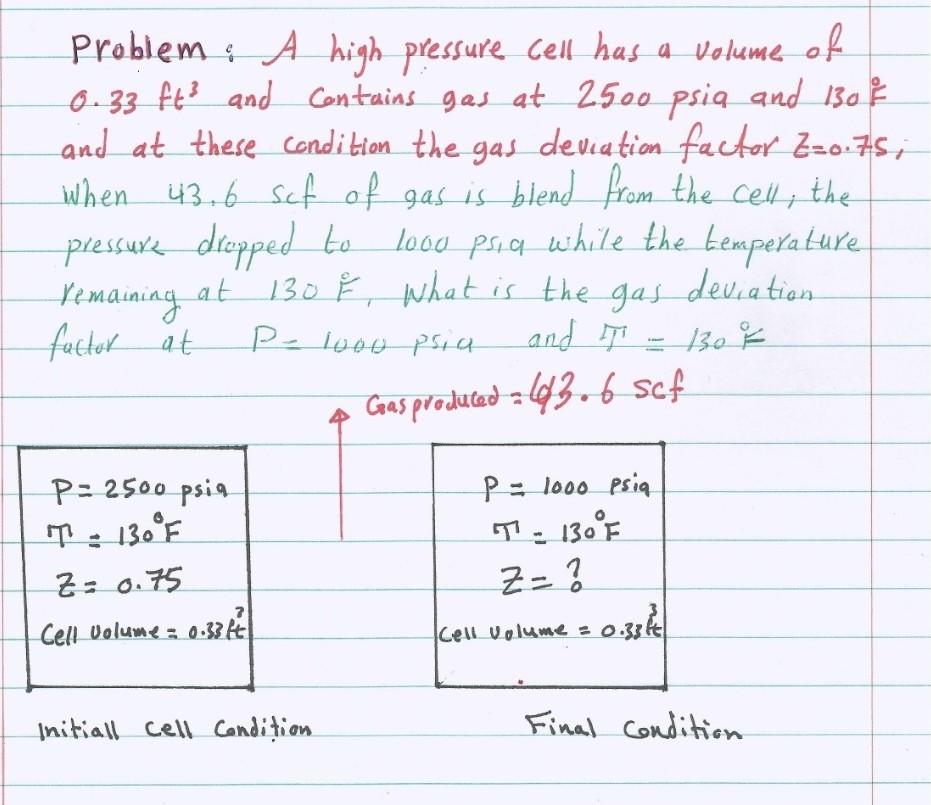 Problem : A high pressure cell has a volume of
0.33 ft³ and Contains gas at 2500 psia and 130°F
and at these condition the gas deviation factor Z=0.75,
When 43.6 scf of gas is blend from the cell, the
pressure dropped to 1000 psia while the temperature
remaining at 130°F, What is the gas deviation
factor at P= 1000 psia and T = 130°F
Gas produced = 43.6 scf
P= 2500 psia
T = 130°F
Z= 0.75
Cell Volume = 0.33 ft³
Initiall Cell Condition
P = 1000 psia
T = 130°F
Z= ?
Cell Volume = 0.33 ft³
Final Condition